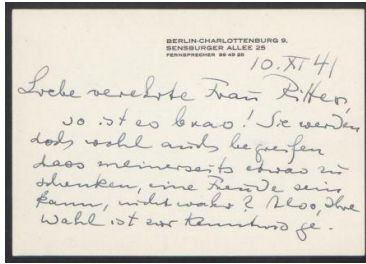 BERLIN-CHARLOTTENBURG 9,
SENSBURGER ALLEE 25
FERNSPRECHER 99 45 25
10. XI 41
Liebe verehrte Frau Ritter,
so ist es brav! Sie werden
doch wohl auch begreifen
dass meinerseits etwas zu
schenken, eine Freude sein
kann, nicht wahr? Also, Ihre
Wahl ist zur Kenntnis ge-